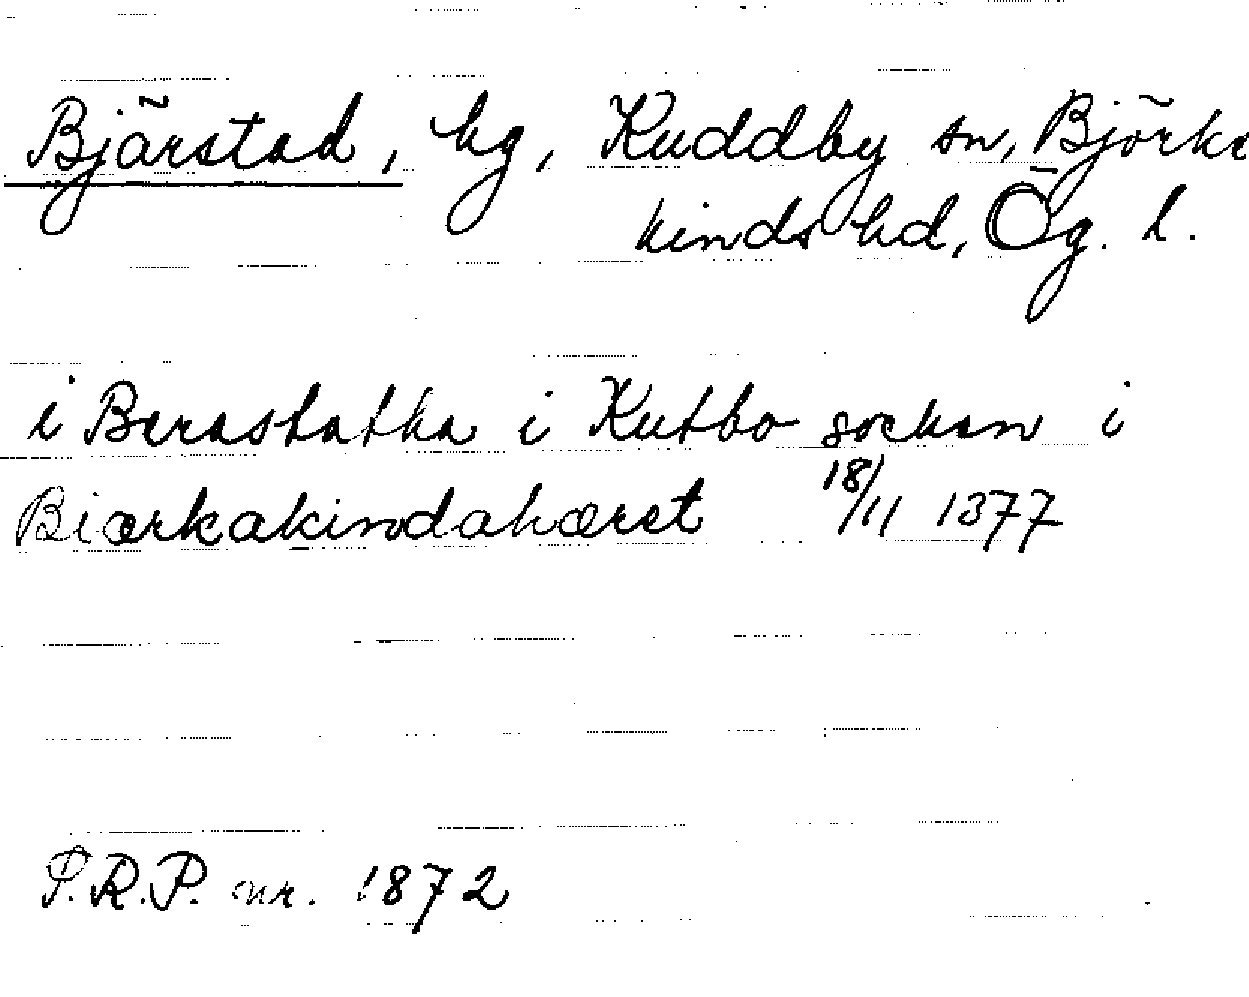 Bjärstad, hg, Kuddby sn, Björke
kinds hd, Ög. l.
i Berastatha i Kutbo sockan i
Biærkakindahæret 18/11 1377
P.R.P. nr. 1872